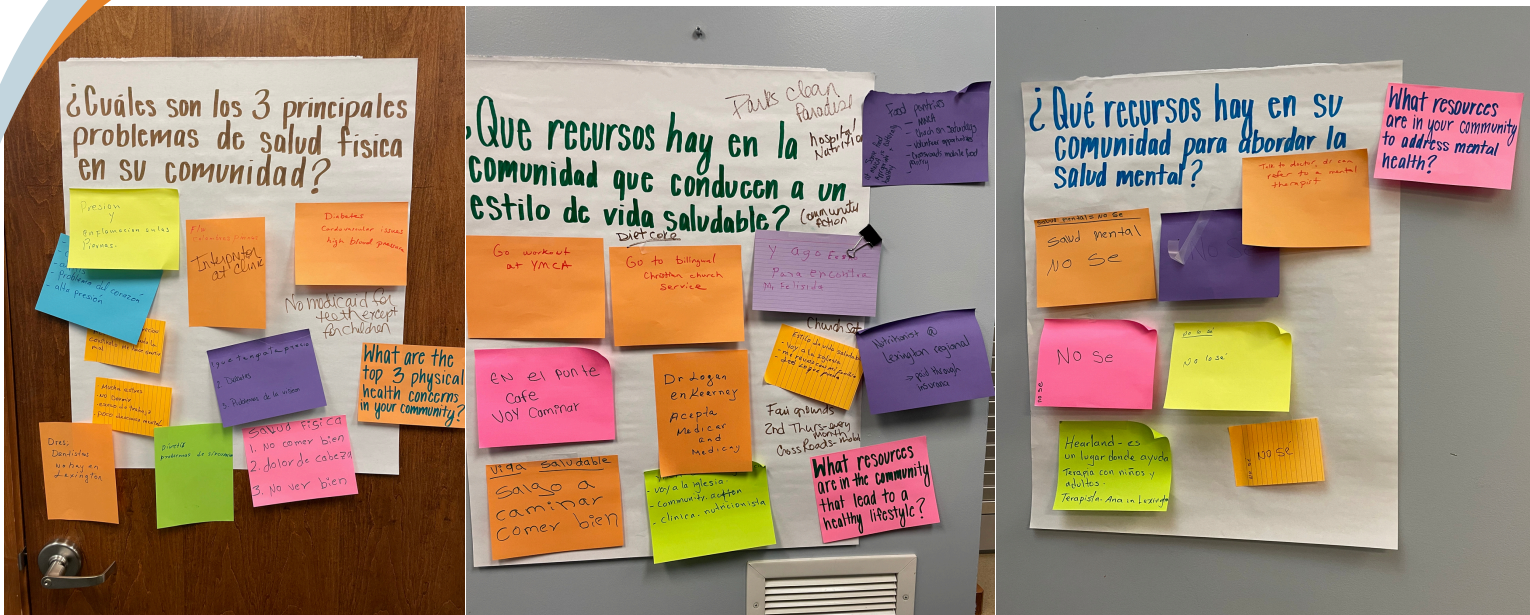 ¿Cuáles son los 3 principales
problemas de salud física
en su comunidad?
Presión
y
enflamacion en las
Piernas.
Interpretor
at clinic
Diabetes
Cardiovascular issues
high blood pressure
problema del corazón
- alta presión
No medicaid for
teeth except
for children
Mucho estres
- NO Dormir
- exceso de trabajo
2. Diabetes
3. Problemas de la
What are the
top 3 physical
health concerns
in your community?
Dres.
Dentistas
no hay en
Lexington
Salud Fisica
1. No comer bien
2. dolor de cabeza
3. No ver bien
Que recursos hay en la
comunidad que conducen a un
estilo de vida saludable?
Parks clean
Paradise
hospital
Nutrition
Community
action
Food pantries
- YMCA
- Church on Saturdays
- Volunteer opportunities
- Crossroads mobile food
pantry
Go workout
at YMCA
Diet core
Go to bilingual
Christian church
service
Y ago
Para encontra
Mi felisida
Church Sat
Estilo de vida saludable
- Voy a la iglesia
Nutritionist @
lexington regional
→ paid through
insurance
EN el punte
Cafe
VOY Caminar
Dr Logan
en Kearney
Acepta
Medicar
and
Medicay
Fair grounds
2nd Thurs-every
month
CrossRoads-mobil
Vida saludable
Salgo a
caminar
comer bien
- voy a la iglesia
- community action
- clinica - nutricionista
What resources
are in the community
that lead to a
healthy lifestyle?
¿Qué recursos hay en su
comunidad para abordar la
salud mental?
What resources
are in your community
to address mental
health?
Talk to doctor, dr can
refer to a mental
therapist
Salud mentals NO Se
Salud mental
NO Se
NO Se
NO Se
NO Se
No lo sé
No lo sé
Hearland - es
un lugar donde ayuda
Terapia con niños y
adultos.
Terapista - Ana in Lexington
NO Se
NO Se